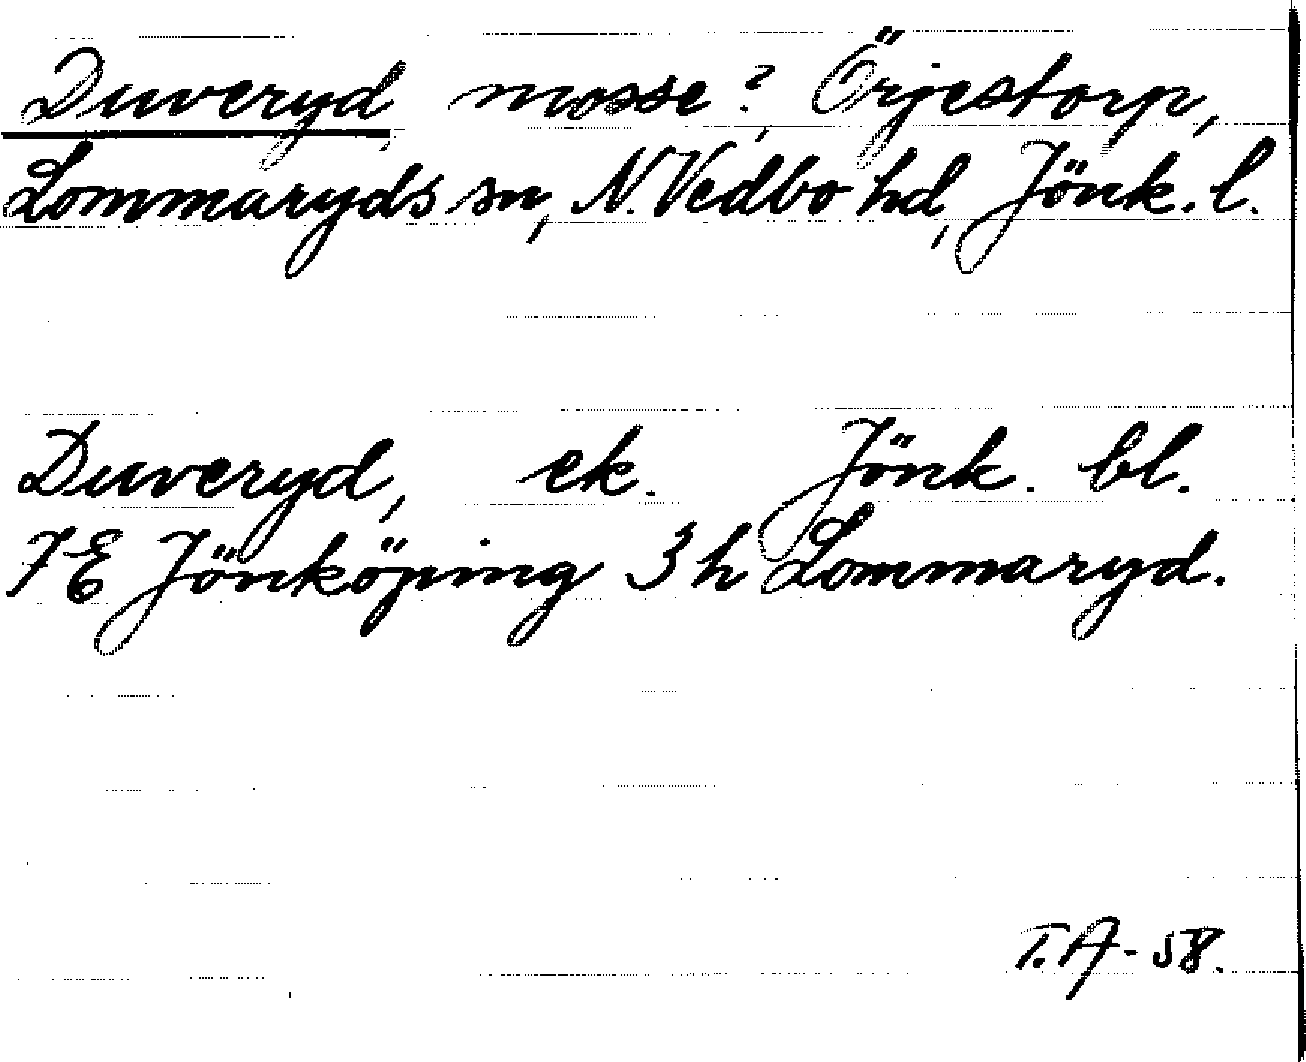 Duveryd mosse?, Örjestorp,
Lommaryds sn, N. Vedbo hd, Jönk. l.
Duveryd, ek. Jönk. bl.
7E Jönköping 3h Lommaryd.
T.A-58.